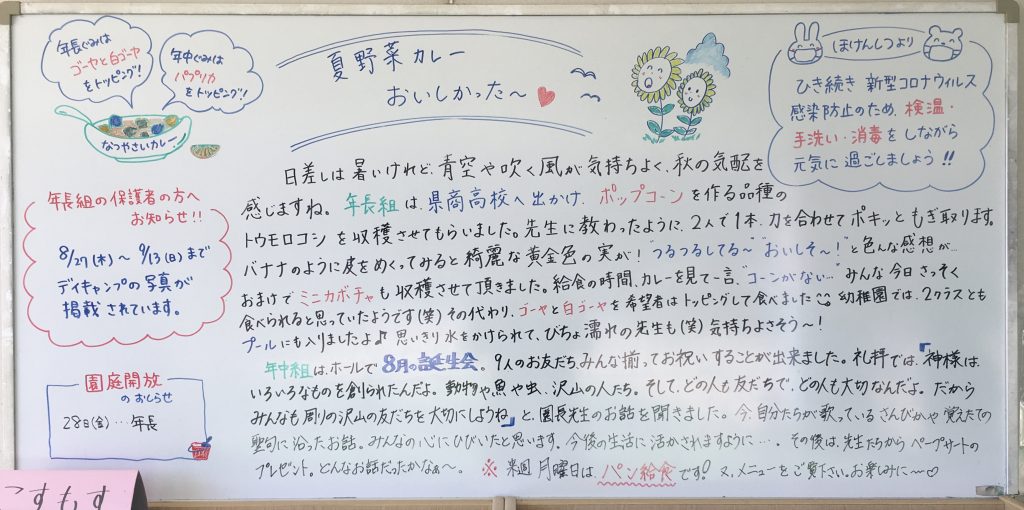 年長ぐみは
ゴーヤと白ゴーヤ
をトッピング!
年中ぐみは
パプリカ
をトッピング!
なつやさいカレー
夏野菜カレー
おいしかった〜
ほけんしつより
ひき続き 新型コロナウィルス
感染防止のため、検温・
手洗い・消毒をしながら
元気に過ごしましょう!!
年長組の保護者の方へ
お知らせ!!
8/27(木)〜9/13(日)まで
デイキャンプの写真が
掲載されています。
園庭開放
のおしらせ
28日(金)…年長
日差しは暑いけれど、青空や吹く風が気持ちよく、秋の気配を
感じますね。年長組は、県商高校へ出かけ、ポップコーンを作る品種の
トウモロコシを収穫させてもらいました。先生に教わったように、2人で1本、力を合わせてポキッともぎ取ります。
バナナのように皮をめくってみると綺麗な黄金色の実が!"つるつるしてる〜""おいしそ〜!"と色んな感想が…
おまけでミニカボチャも収穫させて頂きました。給食の時間、カレーを見て一言、"コーンがない…"みんな今日さっそく
食べられると思っていたようです(笑)その代わり、ゴーヤと白ゴーヤを希望者はトッピングして食べました 幼稚園では、2クラスとも
プールにも入りましたよ♪思いきり水をかけられて、びちょ濡れの先生も(笑)気持ちよさそう〜!
年中組は、ホールで8月の誕生会。9人のお友だち、みんな揃ってお祝いすることが出来ました。礼拝では、「神様は、
いろいろなものを創られたんだよ。動物や、魚や虫、沢山の人たち。そして、どの人も友だちで、どの人も大切なんだよ。だから
みんなも周りの沢山の友だちを大切にしようね」と、園長先生のお話を聞きました。今、自分たちが歌っているさんびかや覚えたての
聖句に沿ったお話。みんなの心にひびいたと思います。今後の生活に活かされますように…。その後は、先生たちからペープサートの
プレゼント。どんなお話だったかなぁ〜。 ※来週月曜日は、パン給食です!又、メニューをご覧下さい。お楽しみに〜♡
こすもす